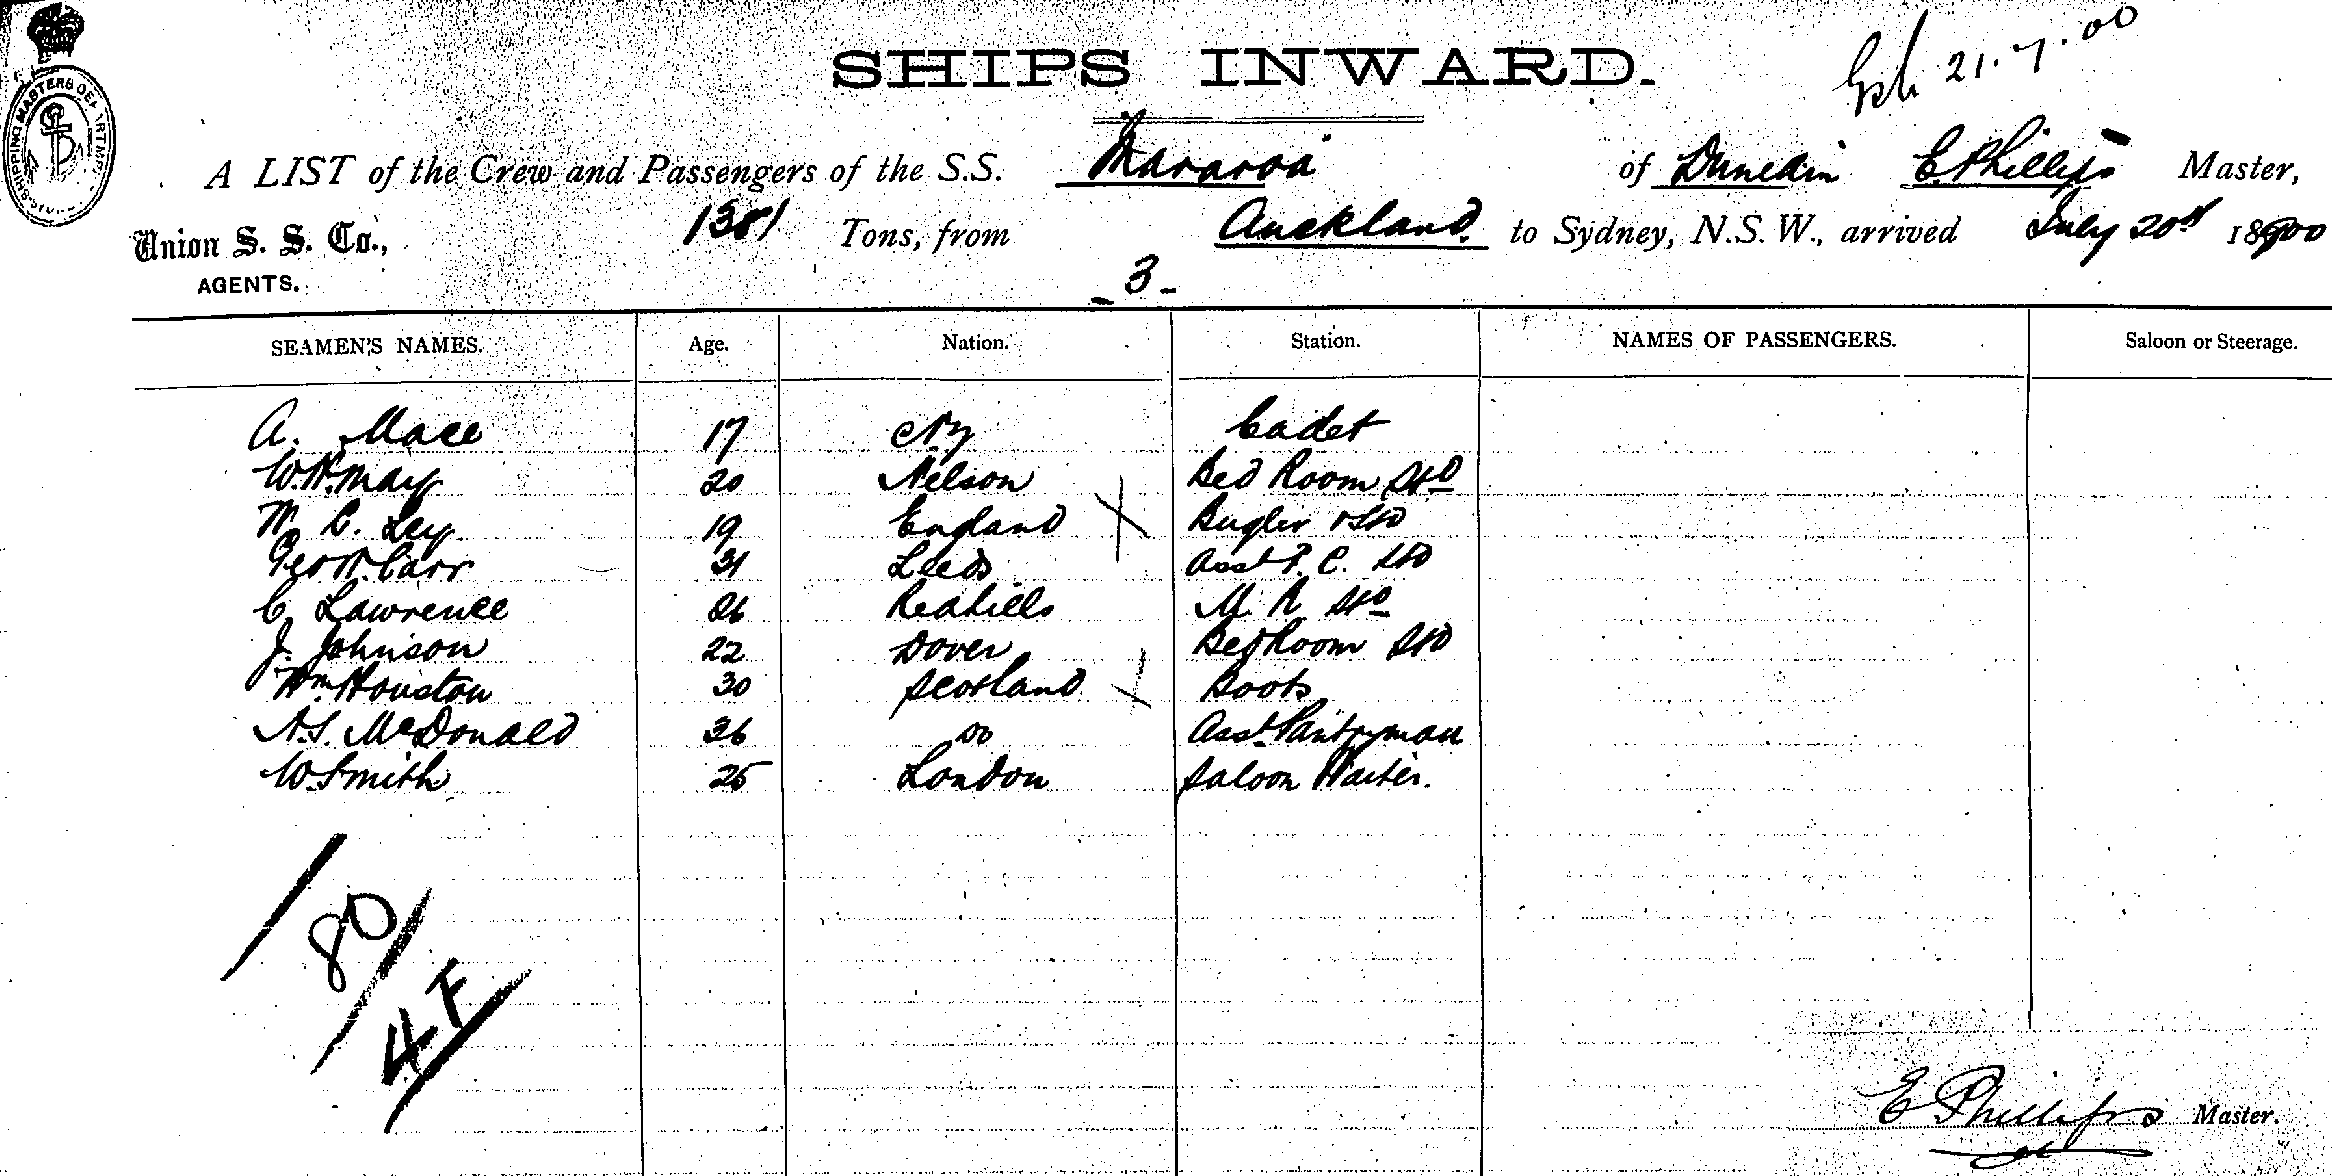 SHIPS INWARD.
21.7.00
SHIPPING MASTERS DEPARTMENT
A LIST of the Crew and Passengers of the S.S. Mararoa of Dunedin E. Phillips Master,
Union S. S. Co., AGENTS. 1381 Tons, from Auckland. to Sydney, N.S.W., arrived July 20th 1900
- 3 -
SEAMEN'S NAMES. Age. Nation. Station. NAMES OF PASSENGERS. Saloon or Steerage.
A. Mace 17 NZ Cadet
W.H. May 20 Nelson Bed Room Std
W. C. Ley 19 England X Bugler & Std
Geo H. Carr 31 Leeds Asst F. C. Std
C. Lawrence 26 Redhills M. R Std
J. Johnson 22 Dover BedRoom Std
Wm Houston 30 Scotland X Boots
A.S. McDonald 36 do Asst. Pantryman
W. Smith 25 London Saloon Waiter.
/ 80 /
4 F /
E Phillips Master.